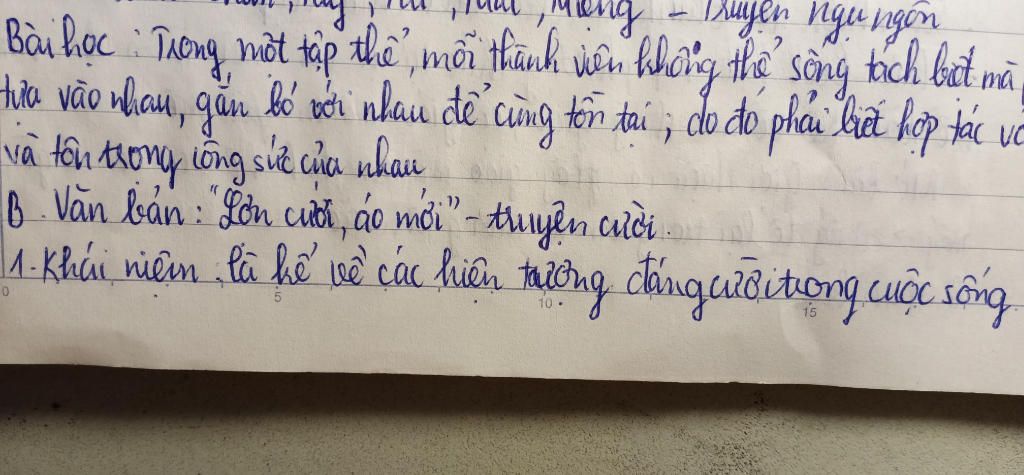 , Tay, Tai, Mắt, Miệng - Truyện ngụ ngôn
Bài học : Trong một tập thể, mỗi thành viên không thể sống tách biệt mà
tựa vào nhau, gắn bó với nhau để cùng tồn tại ; do đó phải biết hợp tác
và tôn trọng công sức của nhau
B. Văn bản : "Lợn cưới, áo mới" - truyện cười.
1. Khái niệm : là kể về các hiện tượng đáng cười trong cuộc sống.
0 5 10 15